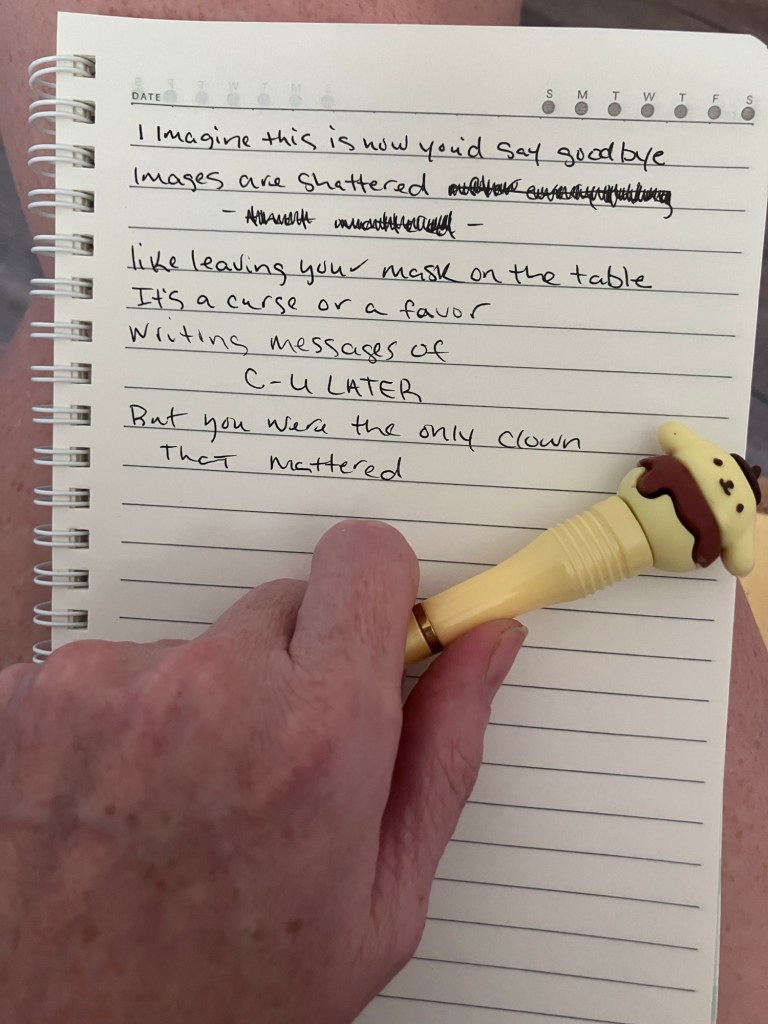 DATE
S M T W T F S
I Imagine this is how you'd say goodbye
Images are shattered
- -
like leaving your mask on the table
It's a curse or a favor
Writing messages of
C-U LATER
But you were the only clown
That mattered